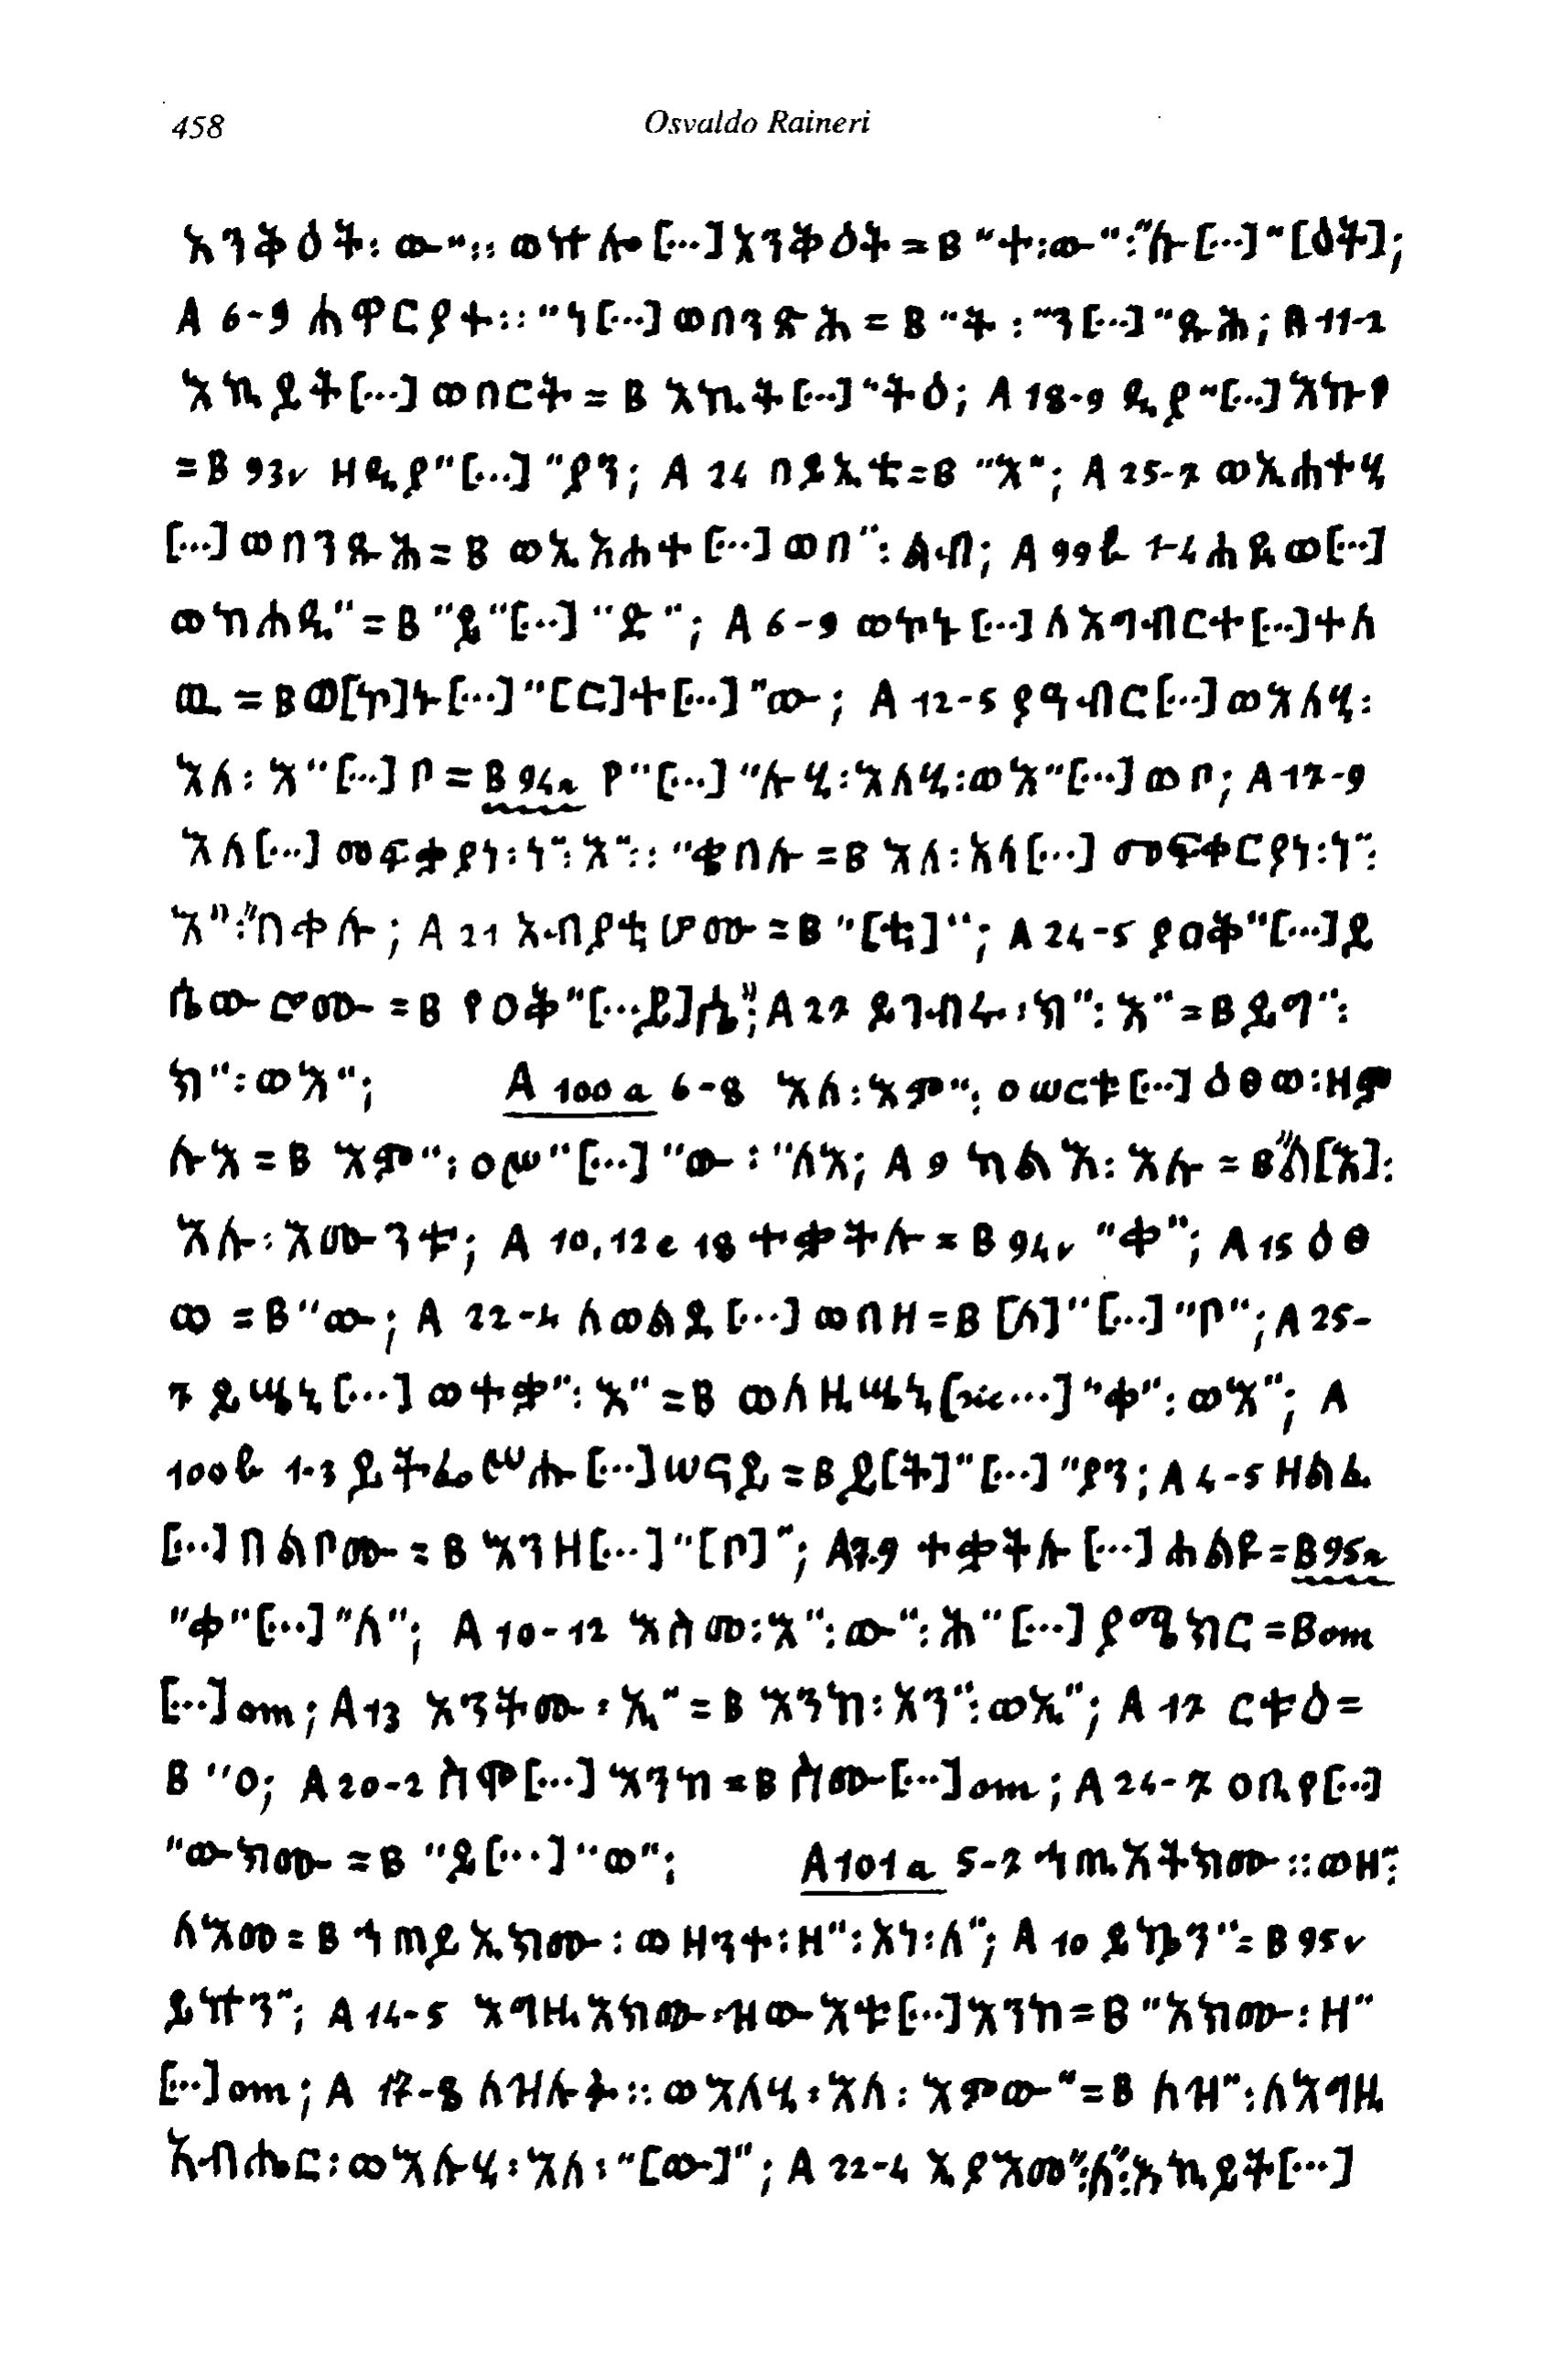 458 Osvaldo Raineri
አንቅዕት፡ ው"።ወኵሎ[...]አንቅዕት = B "ት፡ው"፡"ሉ[...]"[ዕት];
A 6-9 ሐዋርያት።"ነ[...]ወበንጽሕ = B "ት፡"ን[...]"ጹሕ; A 11-2
እኪይት[...]ወበርት = B እኪት[...]"ትዕ; A 18-9 ዲያ"[...]እኩየ
= B 93v ዘዲያ"[...]"ያን; A 24 በይእቲ=B "እ"; A 25-7 ወኢሐተሂ
[...]ወበንጹሕ = B ወኢአሐተ[...]ወበ"፡ልብ; A 99b 1-4 ሐይወ[...]
ወከሐዲ"= B "ይ"[...]"ድ"; A 6-9 ወኵኑ[...]ለአግብርተ[...]ተለ
ዉ = B ወ[ኵ]ኑ[...]"[ር]ተ[...]"ው; A 12-5 ያዓብር[...]ወእለሂ፡
እለ፡ እ"[...]ቦ = B 94r የ"[...]"ሉሂ፡እለሂ፡ወእ"[...]ወቦ; A 17-9
እለ[...]መፍቃያነ፡ነ"፡እ"።"ቄበሉ = B እለ፡አለ[...]መፍቀርያነ፡ነ"፡
እ"፡"በቀሉ; A 21 አብያቲሆሙ = B "[ቲ]"; A 24-5 ያዐቅ"[...]ይ
ሴውዎሙ = B የዐቅ"[...ይ]ሴ"; A 27 ይገብሩ፡ክ"፡እ"= B ይግ"፡
ክ"፡ወእ"; A 100a 6-8 እለ፡እም"፡ዐሠርቱ[...]ዕፀወ፡ዘም
ሉእ = B እም"፡ዐሥ"[...]"ው፡"ለእ; A 9 ካልእ፡እሉ = B "ል[እ]፡
እሉ፡እሙንቱ; A 10, 12 e 18 ተቃትሉ = B 94v "ቀ"; A 15 ዕፀ
ወ = B "ው; A 22-4 ለወልድ[...]ወበዘ = B [ለ]"[...]"ቦ"; A 25-
7 ይሤኒ[...]ወተቃ"፡እ" = B ወለዚሤኒ[sic...]"ቀ"፡ወእ"; A
100b 1-3 ይትፌሥሑ[...]ሠናይ = B ይ[ት]"[...]"ያን; A 4-5 ዘልፈ
[...]በልቦሙ = B እንዘ[...]"[ቦ]"; A 7-9 ተቃትሉ[...]ሐልዩ = B 95r
"ቀ"[...]"ለ"; A 10-12 እስመ፡እ"፡ው"፡ሕ"[...]ያሜክር = B om
[...] om; A 13 አንትሙ፡ኢ" = B እንከ፡አን"፡ወኢ"; A 17 ርቱዕ =
B "ዐ; A 20-2 ስሞ[...]እንከ = B ስሙ[...] om; A 24-7 ዐቢየ[...]
"ውክሙ = B "ይ[...]"ወ"; A 101a 5-7 ኃጢአትክሙ።ወዘ"፡
ለእመ = B ኃጣይኢክሙ፡ወዘንተ፡ዘ"፡አነ፡ለ"; A 10 ይኬን" = B 95v
ይኵን"; A 14-5 እግዚእክሙ፡ዝውእቱ[...]እንከ = B "አክሙ፡ዘ"
[...] om; A 17-8 ለዝሉፉ።ወእለሂ፡እለ፡እምው" = B ለዝ"፡ለእግዚ
አብሔር፡ወእሉሂ፡እለ፡"[ው]"; A 22-4 ኢያእመ"፡ለ"፡እኪይት[...]